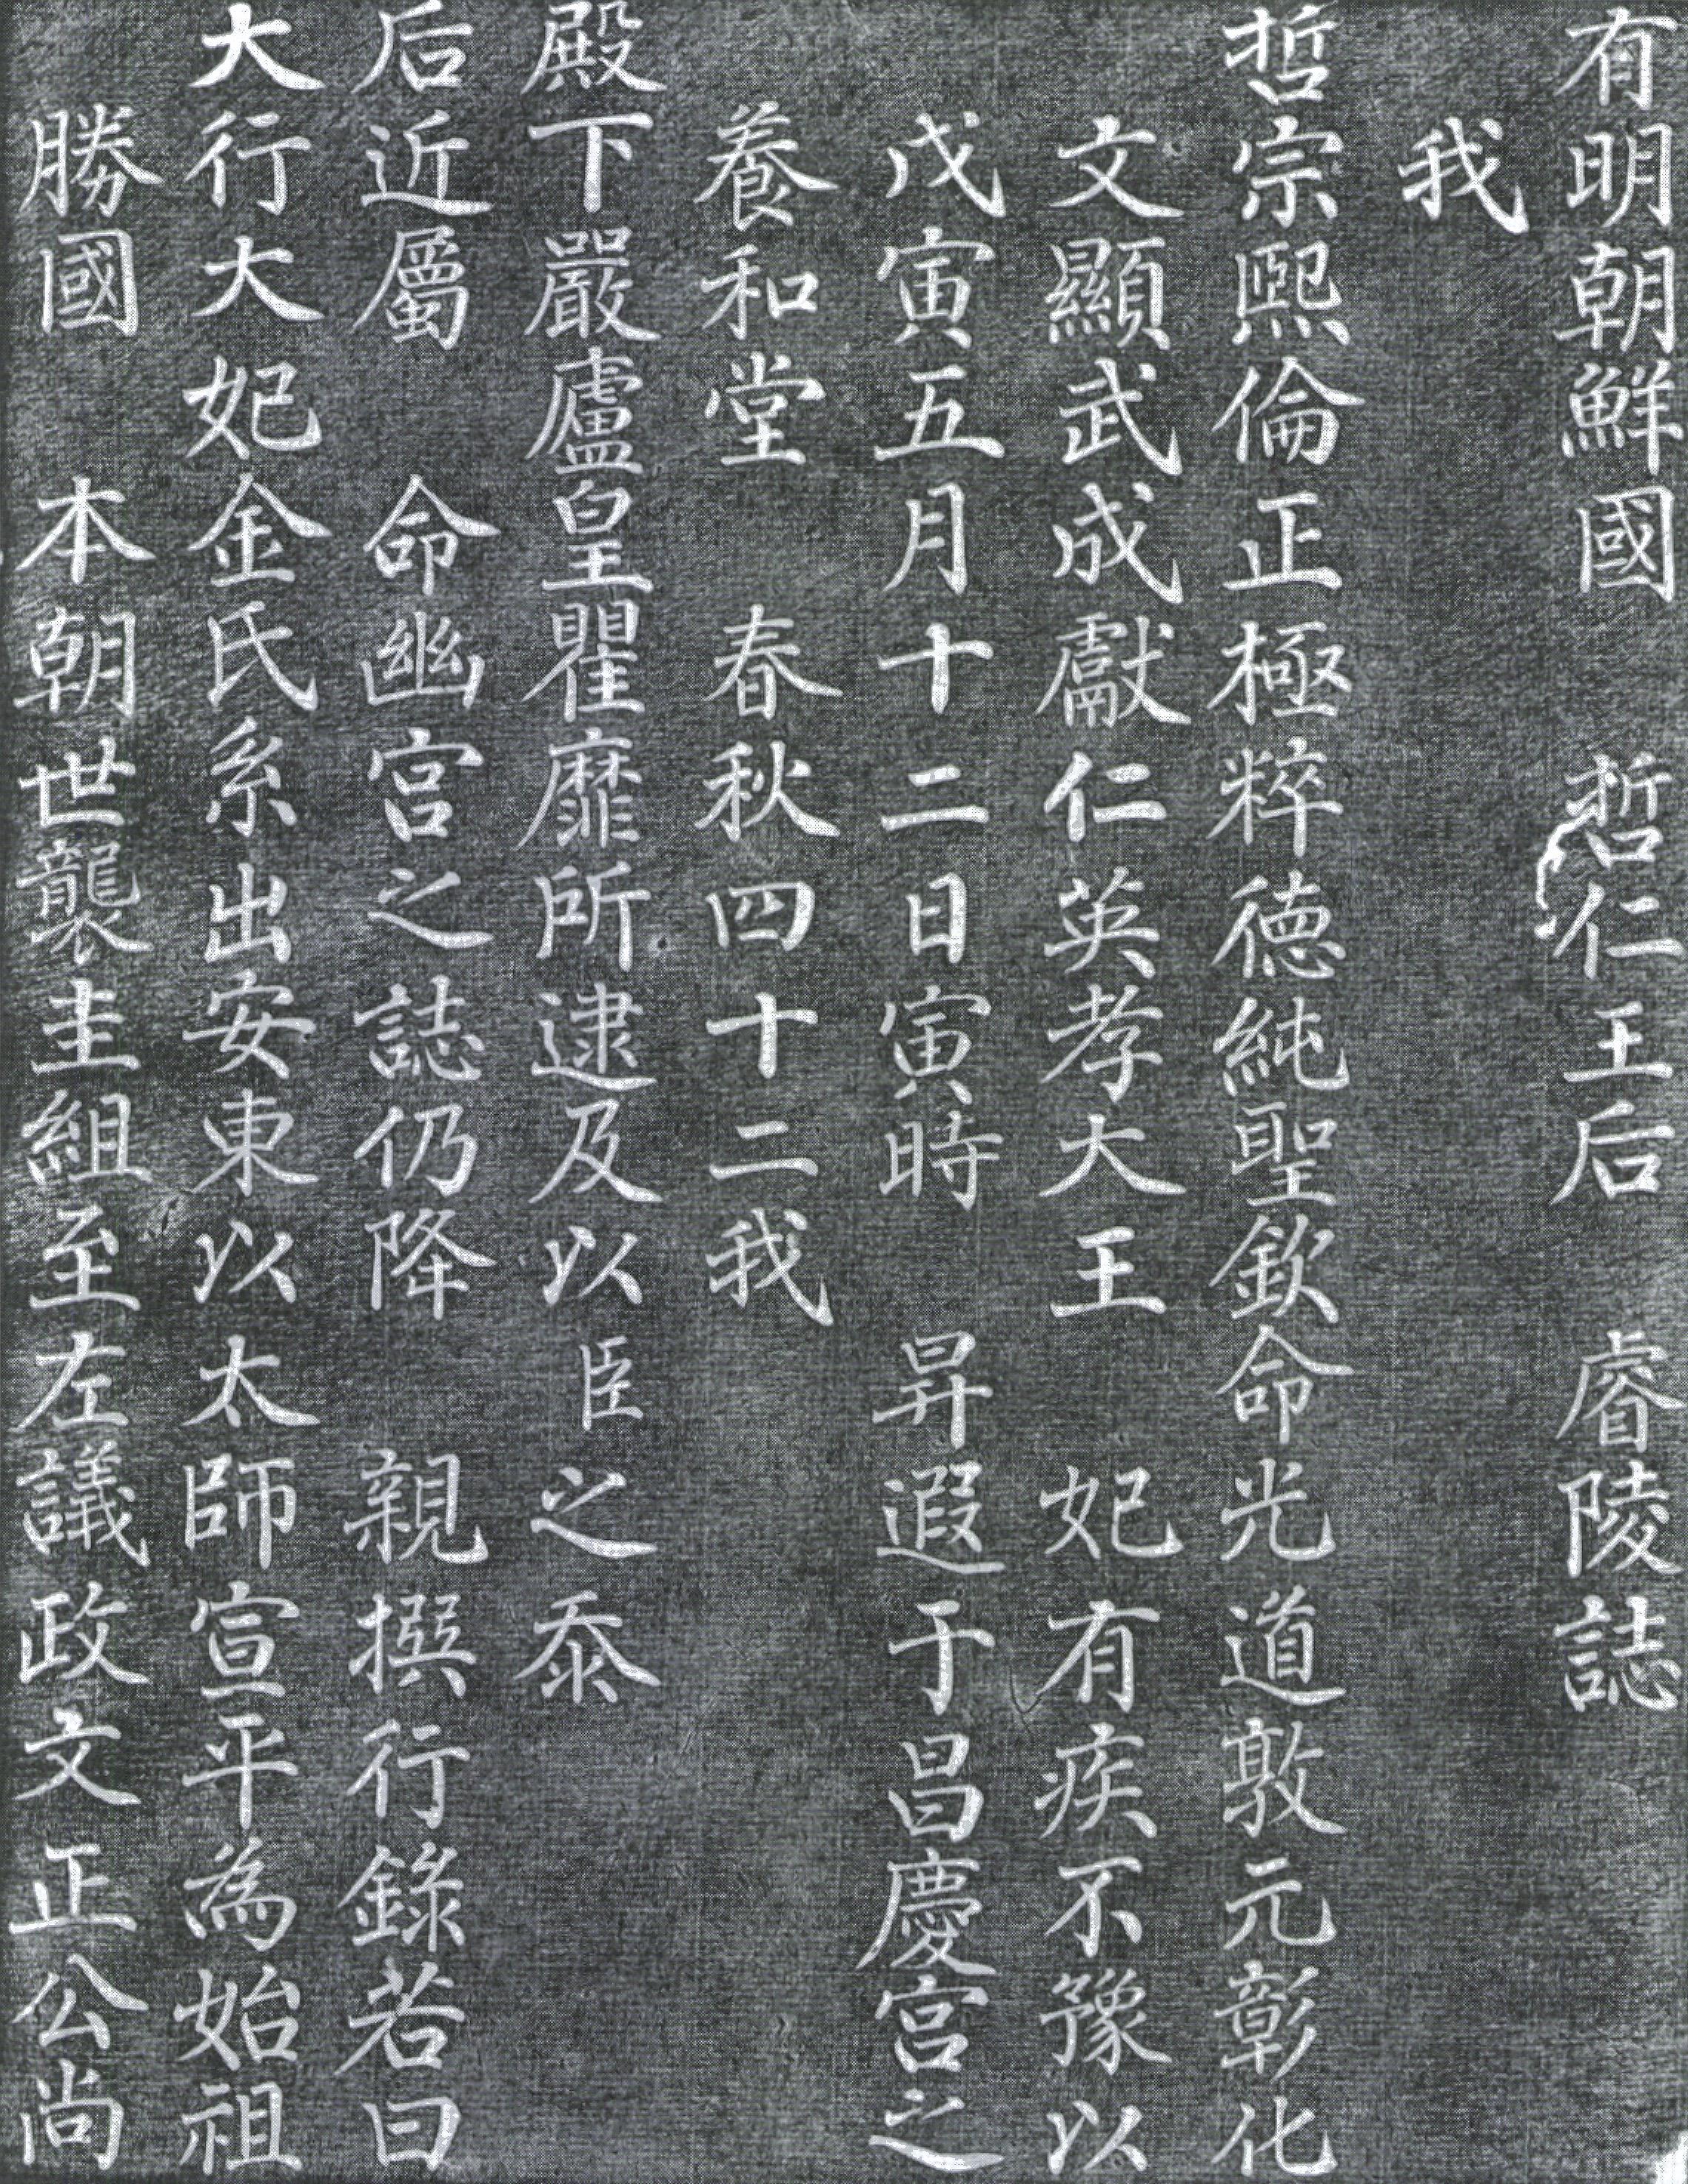 有明朝鮮國 哲仁王后 睿陵誌
我
哲宗熙倫正極粹德純聖欽命光道敦元彰化
文顯武成獻仁英孝大王 妃有疾不豫以
戊寅五月十二日寅時 昇遐于昌慶宮之
養和堂 春秋四十二我
殿下嚴廬皇瞿靡所逮及以臣之忝
后近屬 命幽宮之誌仍降 親撰行錄若曰
大行大妃金氏系出安東以太師宣平為始祖
勝國 本朝世襲圭組至左議政文正公尚